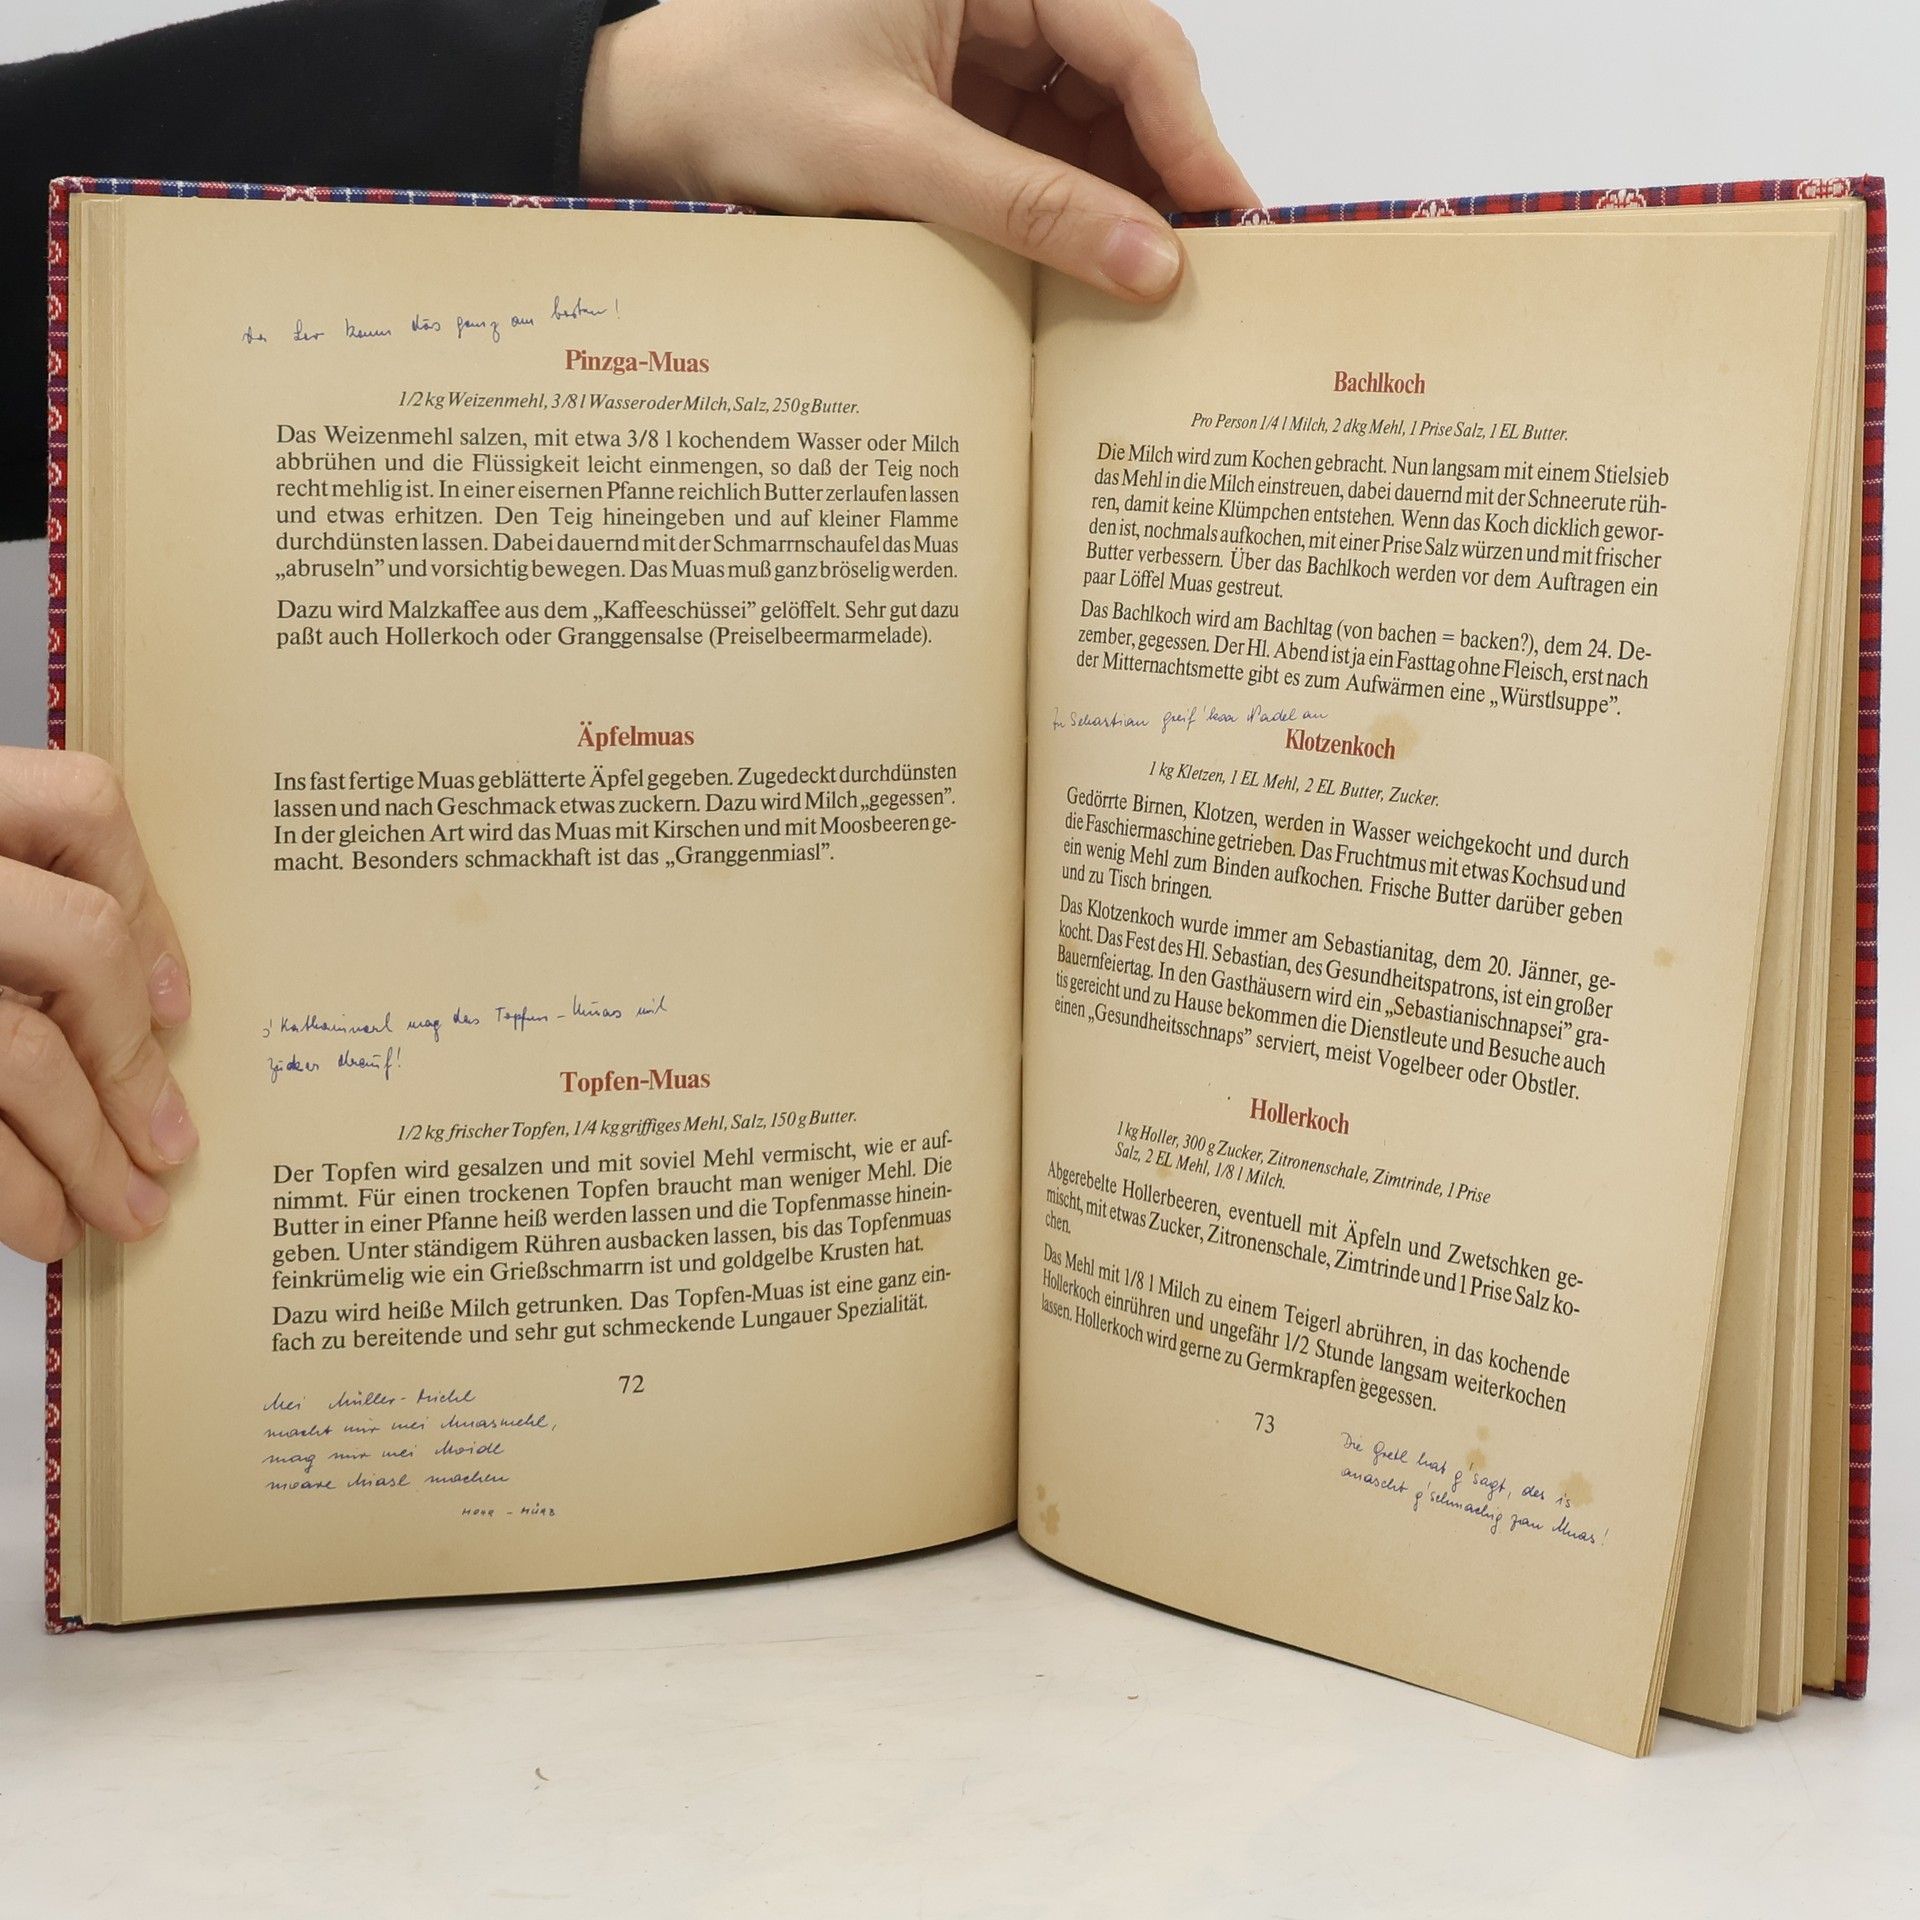 da Ler kann dös ganz am besten!
Pinzga-Muas
1/2 kg Weizenmehl, 3/8 l Wasser oder Milch, Salz, 250 g Butter.
Das Weizenmehl salzen, mit etwa 3/8 l kochendem Wasser oder Milch
abbrühen und die Flüssigkeit leicht einmengen, so daß der Teig noch
recht mehlig ist. In einer eisernen Pfanne reichlich Butter zerlaufen lassen
und etwas erhitzen. Den Teig hineingeben und auf kleiner Flamme
durchdünsten lassen. Dabei dauernd mit der Schmarrnschaufel das Muas
„abruseln” und vorsichtig bewegen. Das Muas muß ganz bröselig werden.
Dazu wird Malzkaffee aus dem „Kaffeeschüssei” gelöffelt. Sehr gut dazu
paßt auch Hollerkoch oder Granggensalse (Preiselbeermarmelade).
Äpfelmuas
Ins fast fertige Muas geblätterte Äpfel gegeben. Zugedeckt durchdünsten
lassen und nach Geschmack etwas zuckern. Dazu wird Milch „gegessen”.
In der gleichen Art wird das Muas mit Kirschen und mit Moosbeeren ge-
macht. Besonders schmackhaft ist das „Granggenmiasl”.
mag das Topfen-Muas mit
Zucker drauf!
Topfen-Muas
1/2 kg frischer Topfen, 1/4 kg griffiges Mehl, Salz, 150 g Butter.
Der Topfen wird gesalzen und mit soviel Mehl vermischt, wie er auf-
nimmt. Für einen trockenen Topfen braucht man weniger Mehl. Die
Butter in einer Pfanne heiß werden lassen und die Topfenmasse hinein-
geben. Unter ständigem Rühren ausbacken lassen, bis das Topfenmuas
feinkrümelig wie ein Grießschmarrn ist und goldgelbe Krusten hat.
Dazu wird heiße Milch getrunken. Das Topfen-Muas ist eine ganz ein-
fach zu bereitende und sehr gut schmeckende Lungauer Spezialität.
72
Mei Müller-Michl
macht mir mei Muasmehl,
mag mir mei Moidl
moare Miasl machen
Bachlkoch
Pro Person 1/4 l Milch, 2 dkg Mehl, 1 Prise Salz, 1 EL Butter.
Die Milch wird zum Kochen gebracht. Nun langsam mit einem Stielsieb
das Mehl in die Milch einstreuen, dabei dauernd mit der Schneerute rüh-
ren, damit keine Klümpchen entstehen. Wenn das Koch dicklich gewor-
den ist, nochmals aufkochen, mit einer Prise Salz würzen und mit frischer
Butter verbessern. Über das Bachlkoch werden vor dem Auftragen ein
paar Löffel Muas gestreut.
Das Bachlkoch wird am Bachltag (von bachen = backen?), dem 24. De-
zember, gegessen. Der Hl. Abend ist ja ein Fasttag ohne Fleisch, erst nach
der Mitternachtsmette gibt es zum Aufwärmen eine „Würstlsuppe”.
Zu Sebastian greif 'koa Nadel an
Klotzenkoch
1 kg Kletzen, 1 EL Mehl, 2 EL Butter, Zucker.
Gedörrte Birnen, Klotzen, werden in Wasser weichgekocht und durch
die Faschiermaschine getrieben. Das Fruchtmus mit etwas Kochsud und
ein wenig Mehl zum Binden aufkochen. Frische Butter darüber geben
und zu Tisch bringen.
Das Klotzenkoch wurde immer am Sebastianitag, dem 20. Jänner, ge-
kocht. Das Fest des Hl. Sebastian, des Gesundheitspatrons, ist ein großer
Bauernfeiertag. In den Gasthäusern wird ein „Sebastianischnapsei” gra-
tis gereicht und zu Hause bekommen die Dienstleute und Besuche auch
einen „Gesundheitsschnaps” serviert, meist Vogelbeer oder Obstler.
Hollerkoch
1 kg Holler, 300 g Zucker, Zitronenschale, Zimtrinde, 1 Prise
Salz, 2 EL Mehl, 1/8 l Milch.
Abgerebelte Hollerbeeren, eventuell mit Äpfeln und Zwetschken ge-
mischt, mit etwas Zucker, Zitronenschale, Zimtrinde und 1 Prise Salz ko-
chen.
Das Mehl mit 1/8 l Milch zu einem Teigerl abrühren, in das kochende
Hollerkoch einrühren und ungefähr 1/2 Stunde langsam weiterkochen
lassen. Hollerkoch wird gerne zu Germkrapfen gegessen.
73
Die Gretl hat g'sagt, des is
anascht g'schmachig zan Muas!